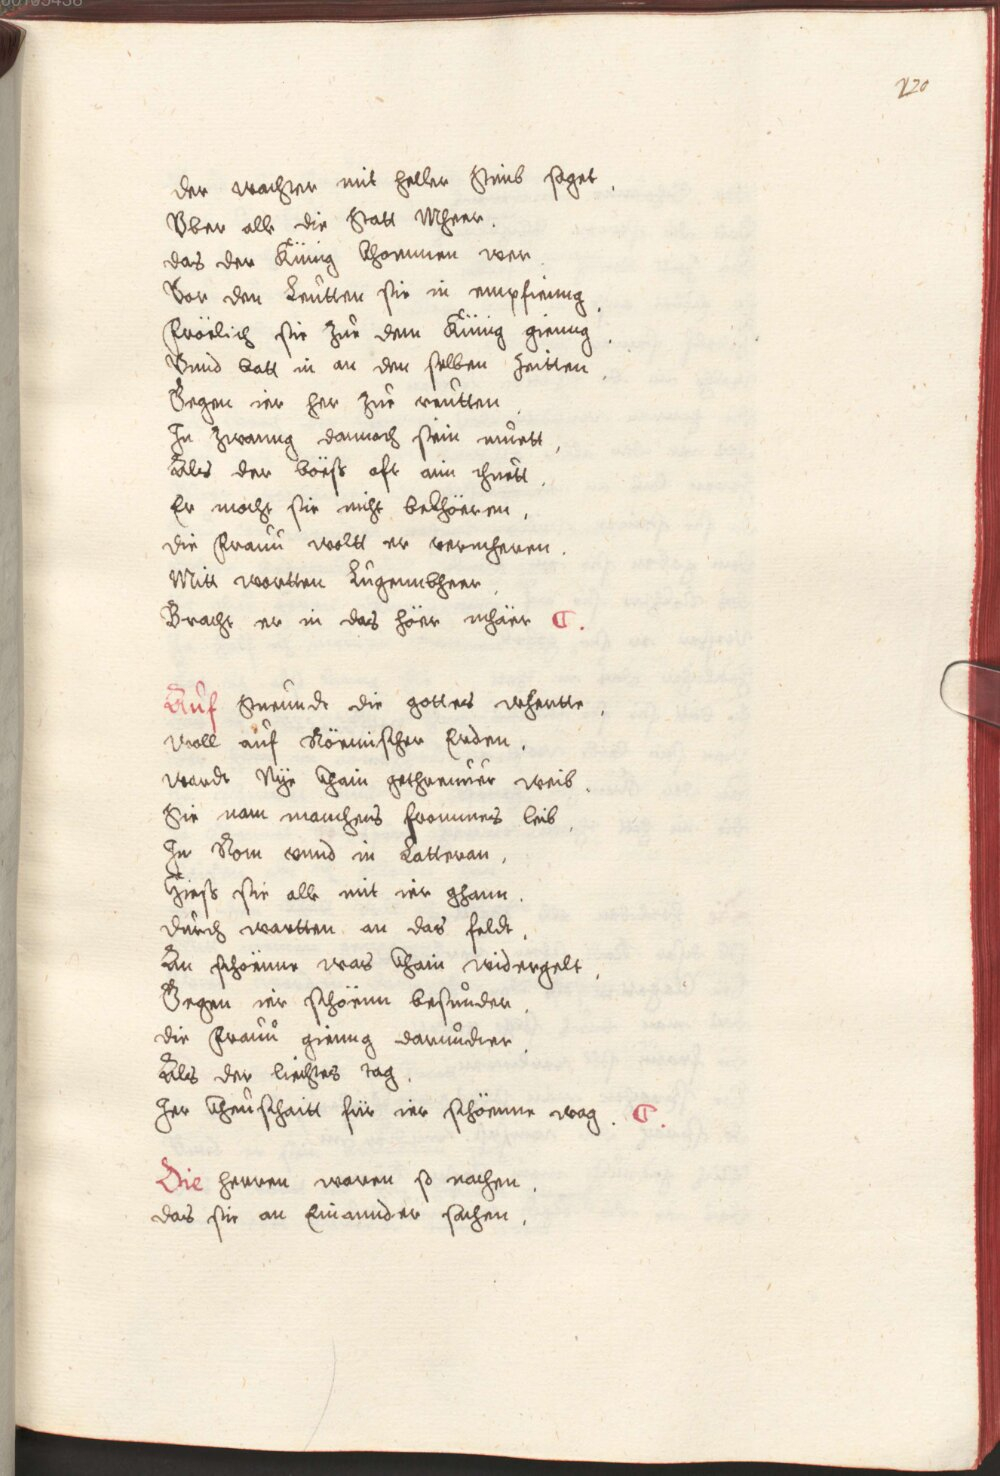 120
der wachter mit heller Stimb saget .
Vber alle die Statt Mheer .
das der Künig khommen wer .
Vor den Leütten sie in empfieng .
Frölich sie zue dem Künig gieng .
Vnnd batt in an den selben Zeitten .
Gegen ier her zue reütten .
In zwanng dannoch sein muett ,
Als der böeß oft ain thuett .
Er mocht sie nicht bekhören ,
die Frauu woltt er vernheren .
Mitt wortten Lugennbheer .
Bracht er in das höer mhäer C .
Auf Stuennde die gottes wherrtte ,
woll auf Römischer Erden ,
warde Nye khain gethreuuer weib .
Sie nam manches frommes leib ,
In Rom vnnd in Latteran ,
Hieß sie alle mit ier ghann .
durch wartten an das feldt ,
An schöenne was khain widergelt ,
Gegen ier schöenn besunder ,
die Frauu gienng darundter ,
Als der liechtes tag .
Her kheüschaitt für ier schöenne wag . C .
Die herren waren so nachen ,
das sie an Einannder sachen ,